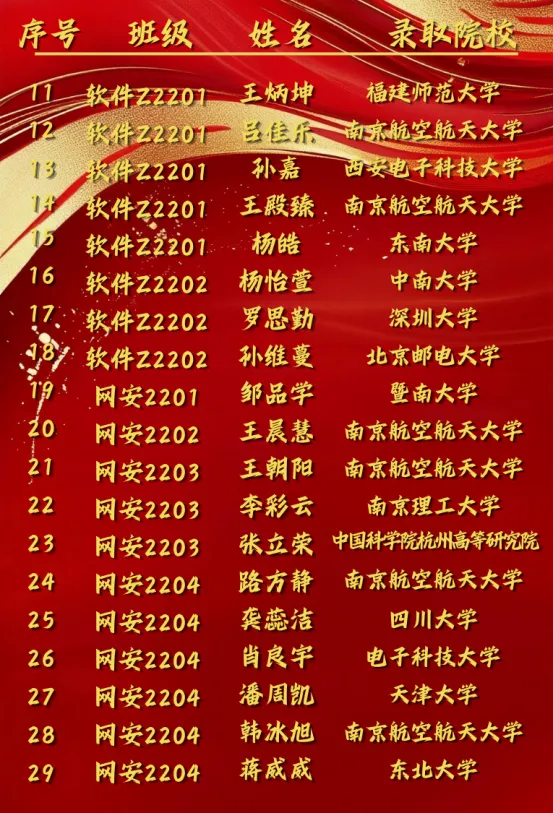 序号 班级 姓名 录取院校
11 软件Z2201 王炳坤 福建师范大学
12 软件Z2201 吕佳乐 南京航空航天大学
13 软件Z2201 孙嘉 西安电子科技大学
14 软件Z2201 王殿臻 南京航空航天大学
15 软件Z2201 杨皓 东南大学
16 软件Z2202 杨怡萱 中南大学
17 软件Z2202 罗思勤 深圳大学
18 软件Z2202 孙维蔓 北京邮电大学
19 网安2201 邹品学 暨南大学
20 网安2202 王晨慧 南京航空航天大学
21 网安2203 王朝阳 南京航空航天大学
22 网安2203 李彩云 南京理工大学
23 网安2203 张立荣 中国科学院杭州高等研究院
24 网安2204 路方静 南京航空航天大学
25 网安2204 龚蕊洁 四川大学
26 网安2204 肖良宇 电子科技大学
27 网安2204 潘周凯 天津大学
28 网安2204 韩冰旭 南京航空航天大学
29 网安2204 蒋威威 东北大学